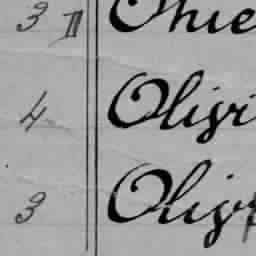 3 III Ohie
4 Oligi
3 Olig